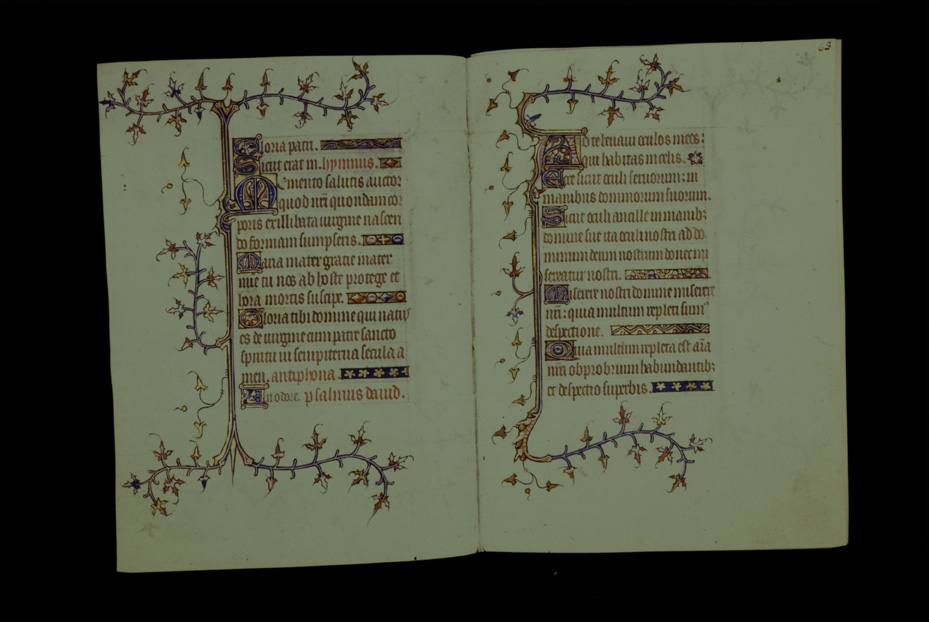 Gloria patri.
Sicut erat in. hymnus.
Memento salutis auctor
quod nr̄i quondam cor
poris ex illibata uirgine nascen
do formam sumpseris.
Maria mater gratie mater
mie tu nos ab hoste protege et
hora mortis suscipe.
Gloria tibi domine qui natus
es de uirgine cum patre sancto
spiritu in sempiterna secula a
men. antiphona.
In odore. psalmus dauid.
63
Ad te leuaui oculos meos:
qui habitas in celis.
Ecce sicut oculi seruorum: in
manibus dominorum suorum.
Sicut oculi ancille in manibꝫ
domine sue ita oculi nostri ad do
minum deum nostrum donec mi
sereatur nostri.
Miserere nostri domine miserere
nr̄i: quia multum repleti sumꝰ
despectione.
Quia multum repleta est aīa
nr̄a obprobrium habundantibꝫ
et despectio superbis.